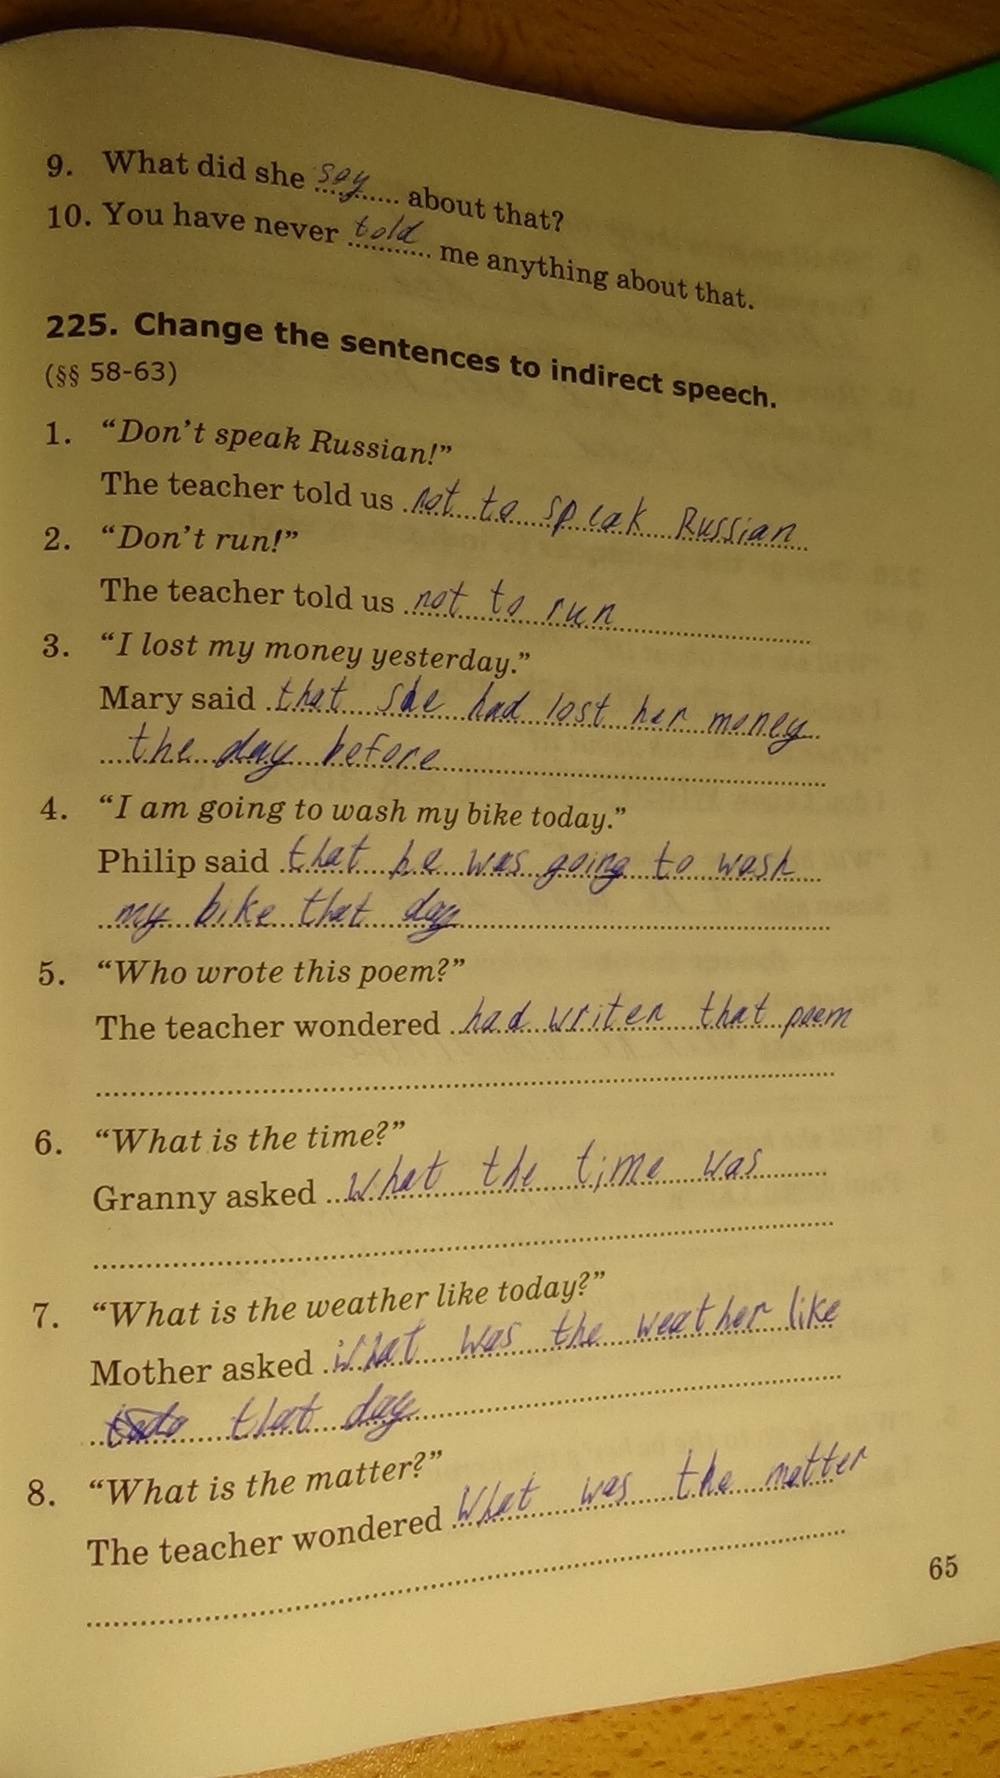 9. What did she say about that?
10. You have never told me anything about that.
225. Change the sentences to indirect speech.
(§§ 58-63)
1. “Don’t speak Russian!”
The teacher told us not to speak Russian
2. “Don’t run!”
The teacher told us not to run
3. “I lost my money yesterday.”
Mary said that she had lost her money
the day before
4. “I am going to wash my bike today.”
Philip said that he was going to wash
my bike that day
5. “Who wrote this poem?”
The teacher wondered had writen that poem
6. “What is the time?”
Granny asked what the time was
7. “What is the weather like today?”
Mother asked what was the weather like
that day
8. “What is the matter?”
The teacher wondered What was the matter
65